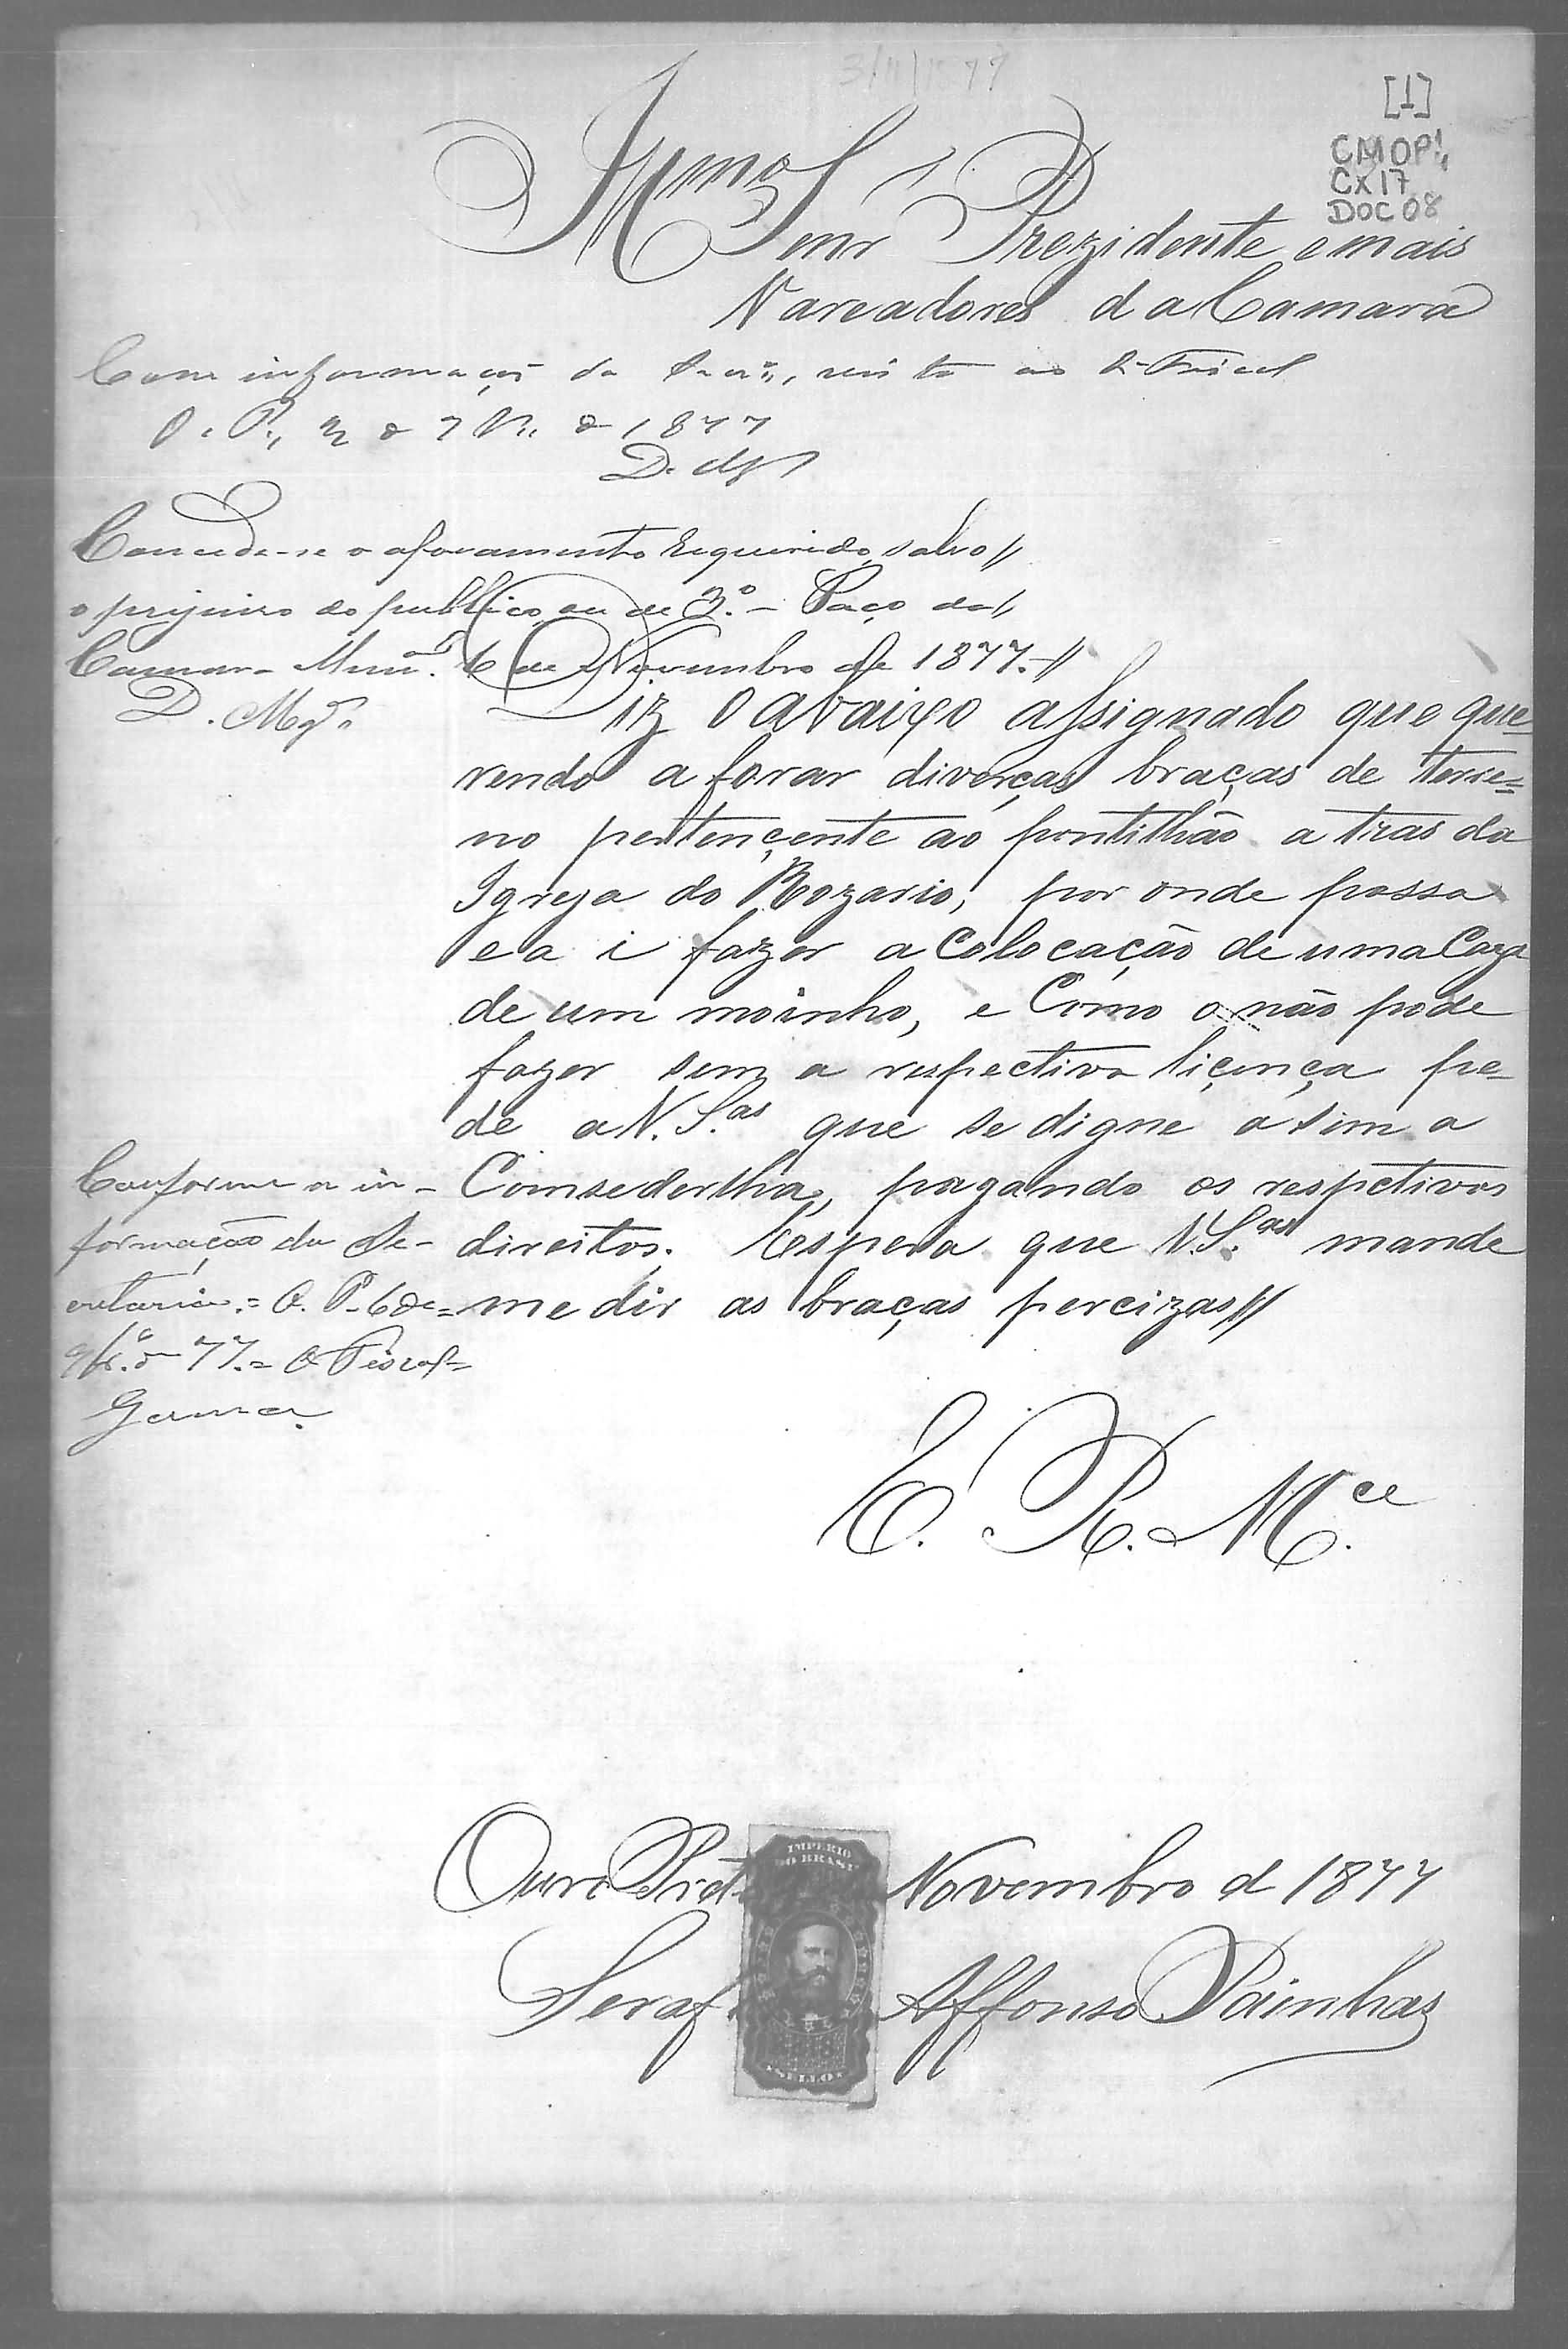 3/11/1877
[1]
CMOP1,
CX17
DOC 08
Illmo Senr Prezidente e mais
Vareadores da Camara
Com informação da Secr.ª, vista ao Fiscal
O. P., 3 de 9br.º de 1877
D. Mg
Concede-se o aforamento requerido, salvo //
o prejuizo do publico ou de 3.º - Paço da //
Camara Mun.al 6 de Novembro de 1877.-//
D. Mg.es
Diz o abaixo assignado que que=
rendo a forar diverças braças de terre=
no pertençente ao pontilhão a tras da
Igreja do Rozario, por onde passa
e a i fazer a Colocação de uma Caza
de um moinho, e Como o não pode
fazer sem a respectiva liçença pe=
de a V. S.as que se digne a sim a
Comsederlha, pagando os respetivos
direitos. Espera que V.S.as mande
me dir as braças percizas //
Conforme a in-
formação da Se-
cretaria.= O. P. 6 de
9br.º de 77.= O Fiscal=
Gama.
E. R. M.ce
Ouro Preto Novembro d 1877
Seraf Affonso Painhas
IMPERIO
DO BRASIL
SELLO